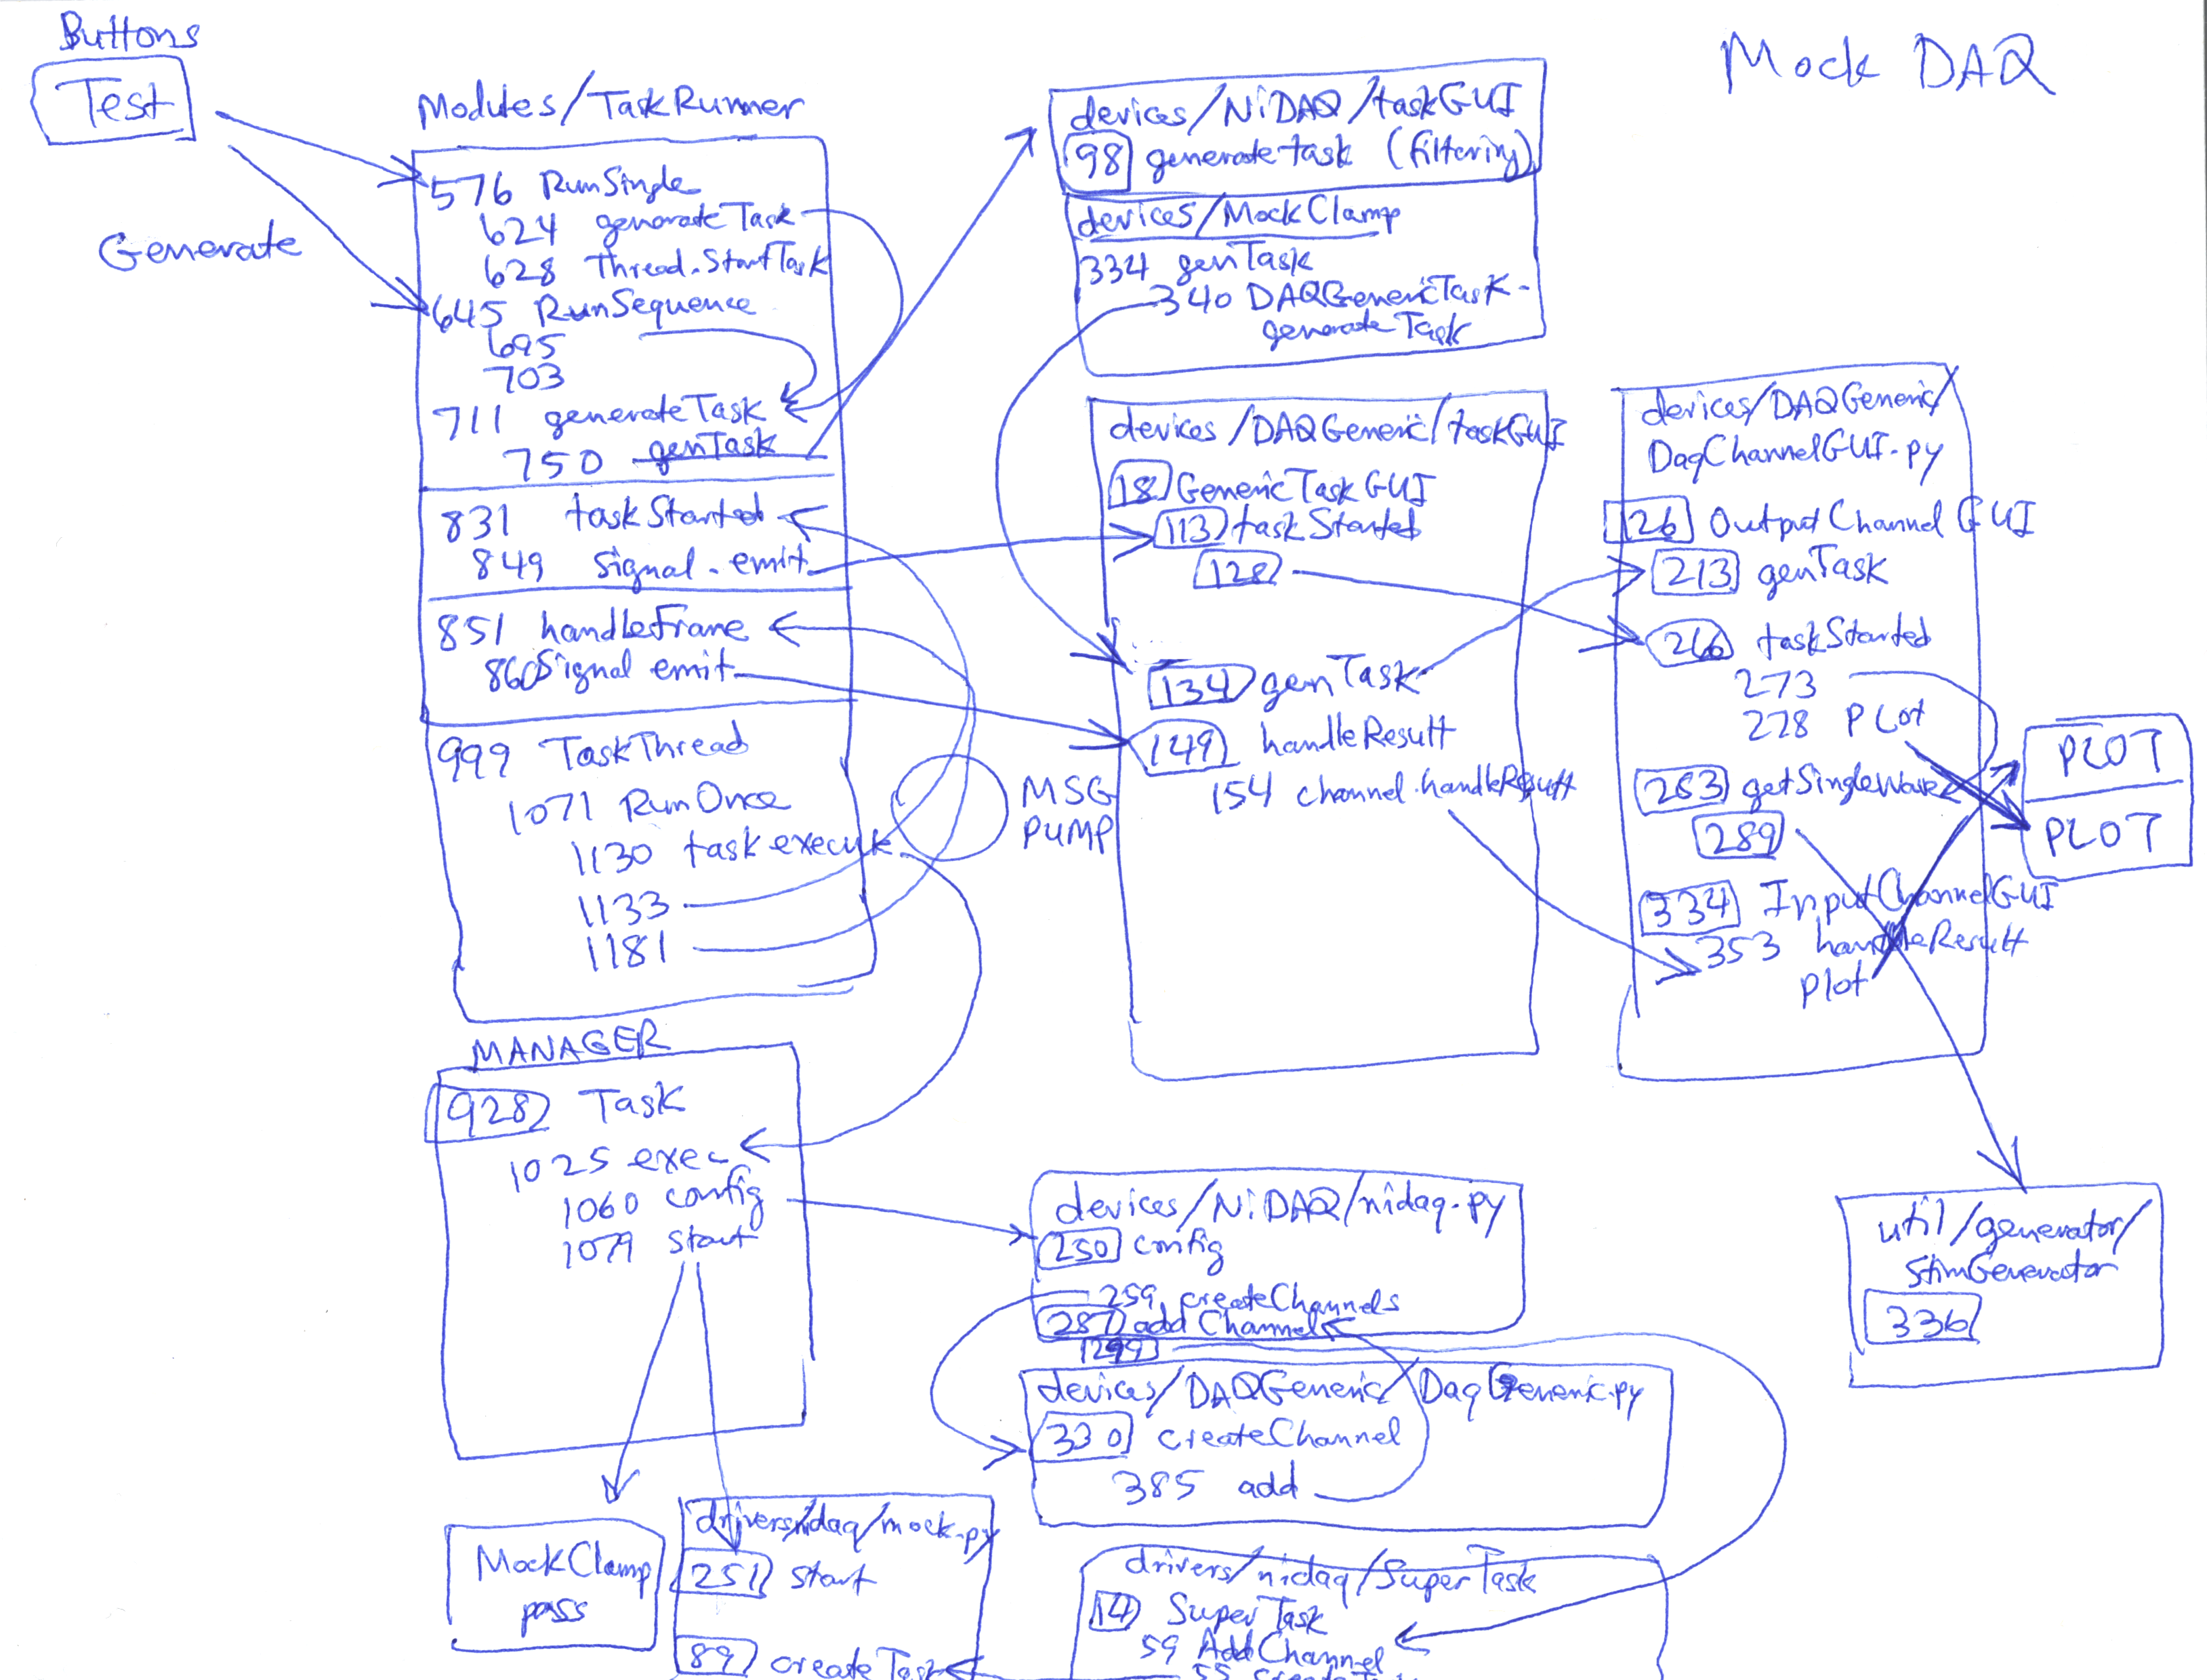 Buttons
Test
Generate
Mock DAQ
Modules/TaskRunner
576 RunSingle
624 generateTask
628 Thread.StartTask
645 RunSequence
695
703
711 generateTask
750 genTask
831 taskStarted
849 Signal.emit
851 handleFrame
860 Signal emit
999 TaskThread
1071 RunOnce
1130 task execute
1133
1181
MSG
PUMP
MANAGER
928 Task
1025 exec
1060 config
1079 start
MockClamp
pass
devices/NiDAQ/taskGUI
98 generatetask (filtering)
devices/MockClamp
334 genTask
340 DAQGenericTask.
generateTask
devices/DAQGeneric/taskGUI
18 GenericTaskGUI
113 taskStarted
128
134 genTask
149 handleResult
154 channel.handleResult
devices/DAQGeneric/
DaqChannelGUI.py
126 OutputChannelGUI
213 genTask
266 taskStarted
273
278 Plot
283 getSingleWave
289
334 InputChannelGUI
353 handleResult
Plot
PLOT
PLOT
util/generator/
StimGenerator
336
devices/NiDAQ/nidaq.py
250 config
259 createChannels
287 addChannel
299
devices/DAQGeneric/DaqGeneric.py
330 createChannel
385 add
drivers/nidaq/mock.py
251 start
89 createTask
drivers/nidaq/SuperTask
14 SuperTask
59 AddChannel
55